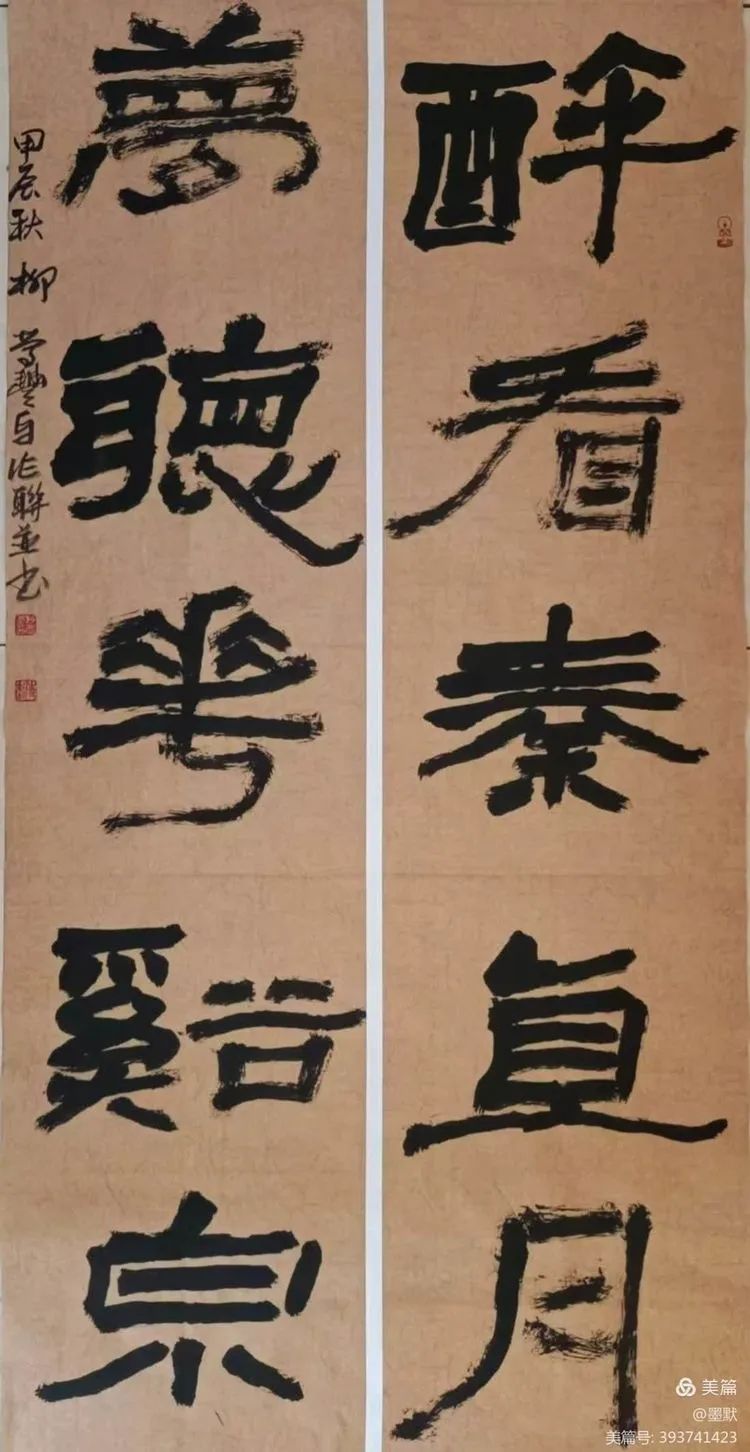 醉看秦直月
夢聽華谿泉
甲辰秋柳 自作聯並书
美篇
@墨默
美篇号: 393741423